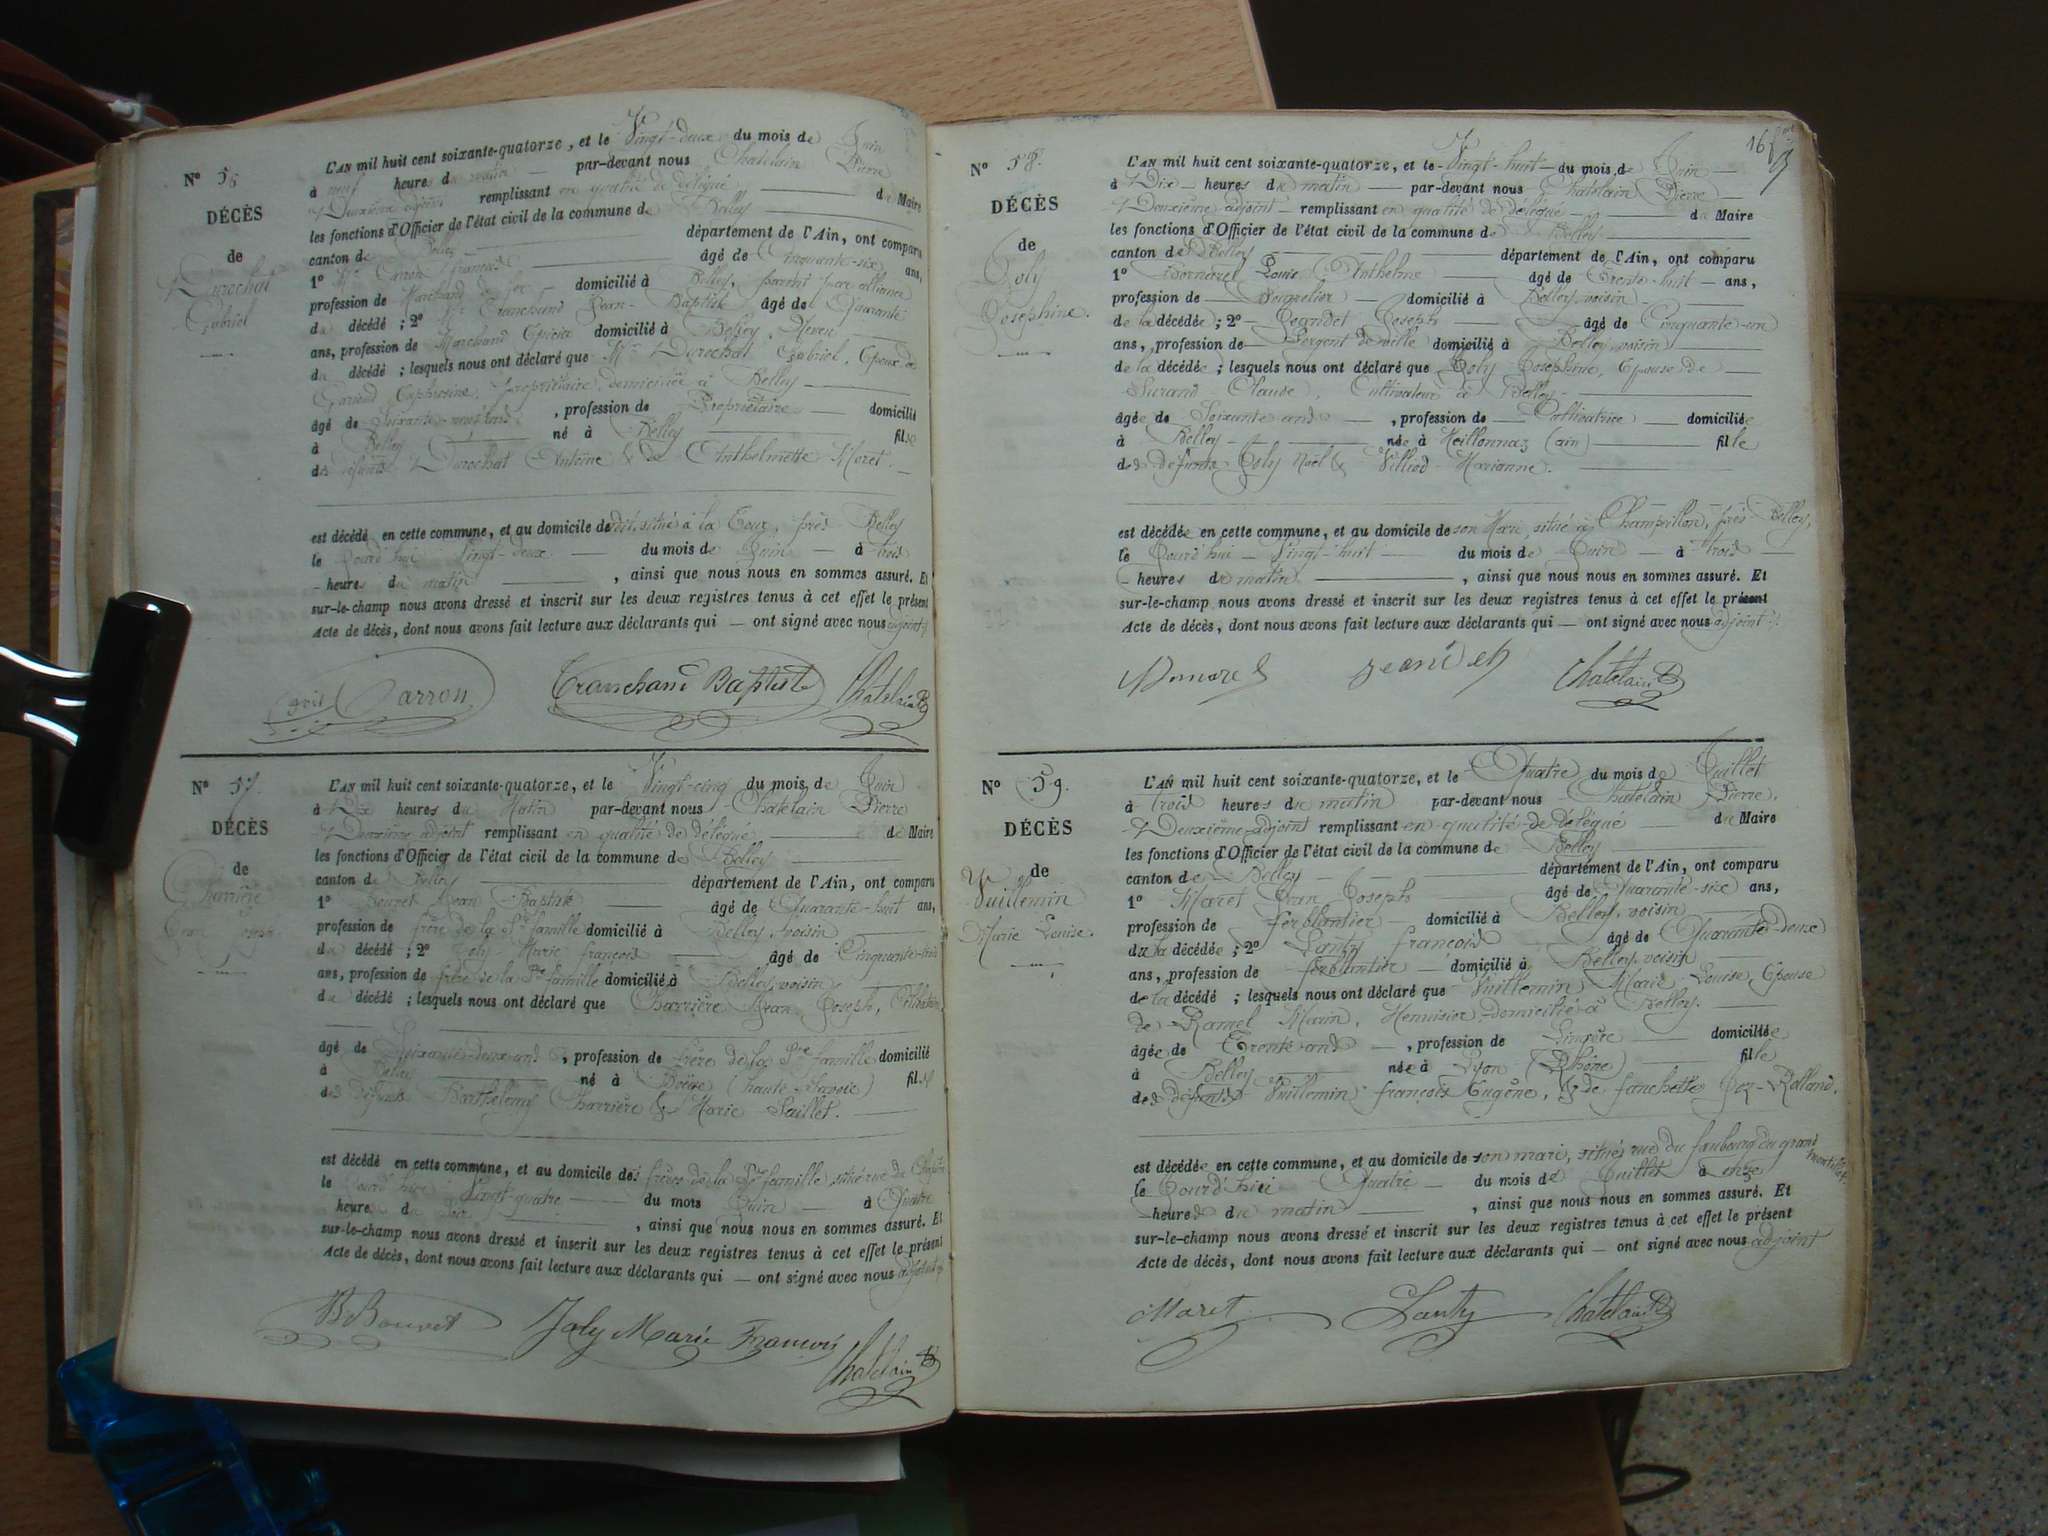 N° 56
DÉCÈS
de
Durochat
Gabriel
L'AN mil huit cent soixante-quatorze, et le Vingt-deux du mois de Juin
à neuf heures du matin par-devant nous Chatelain Pierre
Deuxième adjoint remplissant en qualité de délégué du Maire
les fonctions d'Officier de l'état civil de la commune de Belley
canton de Belley département de l'Ain, ont comparu
1° Mr François âgé de Cinquante-six ans,
profession de Marchand de fer domicilié à Belley, parent par alliance
du décédé ; 2° Mr Tranchand Jean-Baptiste âgé de Quarante
ans, profession de Marchand Epicier domicilié à Belley, Neveu
du décédé ; lesquels nous ont déclaré que Mr Durochat Gabriel, Epoux de
Euphrosine, propriétaire, domicilié à Belley
âgé de Soixante ans, profession de Propriétaire domicilié
à Belley né à Belley fils
des défunts Durochat Antoine & de Anthelmette Moret.
est décédé en cette commune, et au domicile de situé à la Tour, près Belley
le Jourd'hui Vingt-deux du mois de Juin à trois
heures du matin, ainsi que nous nous en sommes assuré. Et
sur-le-champ nous avons dressé et inscrit sur les deux registres tenus à cet effet le présent
Acte de décès, dont nous avons fait lecture aux déclarants qui — ont signé avec nous adjoint
Tranchand Baptiste Chatelain P
N° 57.
DÉCÈS
de
Charrière
Jean Joseph
L'AN mil huit cent soixante-quatorze, et le Vingt-cinq du mois de Juin
à Dix heures du Matin par-devant nous Chatelain Pierre
Deuxième adjoint remplissant en qualité de délégué du Maire
les fonctions d'Officier de l'état civil de la commune de Belley
canton de Belley département de l'Ain, ont comparu
1° Bouvet Jean Baptiste âgé de Quarante-huit ans,
profession de frère de la Ste famille domicilié à Belley, voisin
du décédé ; 2° Joly Marie françois âgé de Cinquante-trois
ans, profession de frère de la Ste famille domicilié à Belley, voisin
du décédé ; lesquels nous ont déclaré que Charrière Jean Joseph, Célibataire,
âgé de Soixante-deux ans, profession de frère de la Ste famille domicilié
à Belley né à Boëge (haute Savoie) fils
des défunts Barthélemy Charrière & Marie Saillet.
est décédé en cette commune, et au domicile des frères de la Ste famille, situé rue du
le Jourd'hui Vingt-quatre du mois Juin à Quatre
heures du soir, ainsi que nous nous en sommes assuré. Et
sur-le-champ nous avons dressé et inscrit sur les deux registres tenus à cet effet le présent
Acte de décès, dont nous avons fait lecture aux déclarants qui — ont signé avec nous adjoint
B Bouvet Joly Marie François
Chatelain P
N° 58.
DÉCÈS
de
Joly
Josephine.
L'AN mil huit cent soixante-quatorze, et le Vingt-huit du mois de Juin
à Dix heures du matin par-devant nous Chatelain Pierre
Deuxième adjoint remplissant en qualité de délégué du Maire
les fonctions d'Officier de l'état civil de la commune de Belley
canton de Belley département de l'Ain, ont comparu
1° Louis Anthelme âgé de Trente-huit ans,
profession de domicilié à Belley, voisin
de la décédée ; 2° Jeandet Joseph âgé de Cinquante-un
ans, profession de Sergent de ville domicilié à Belley, voisin
de la décédée ; lesquels nous ont déclaré que Joly Josephine, Epouse de
Claude, Cultivateur à Belley
âgée de Soixante ans, profession de Cultivatrice domiciliée
à Belley née à Meillonnaz (ain) fille
des défunts Joly Noël & Villiod Marianne.
est décédée en cette commune, et au domicile de son Mari, situé à Champtillon, près Belley,
le Jourd'hui Vingt-huit du mois de Juin à trois
heures du matin, ainsi que nous nous en sommes assuré. Et
sur-le-champ nous avons dressé et inscrit sur les deux registres tenus à cet effet le présent
Acte de décès, dont nous avons fait lecture aux déclarants qui — ont signé avec nous adjoint
Jeandet Chatelain P
N° 59.
DÉCÈS
de
Vuillemin
Marie Louise.
L'AN mil huit cent soixante-quatorze, et le Quatre du mois de Juillet
à trois heures du matin par-devant nous Chatelain Pierre,
Deuxième adjoint remplissant en qualité de délégué du Maire
les fonctions d'Officier de l'état civil de la commune de Belley
canton de Belley département de l'Ain, ont comparu
1° Maret Jean Joseph âgé de Quarante-six ans,
profession de ferblantier domicilié à Belley, voisin
de la décédée ; 2° Lanty françois âgé de Quarante-deux
ans, profession de ferblantier domicilié à Belley, voisin
de la décédé ; lesquels nous ont déclaré que Vuillemin Marie Louise, Epouse
de Ramel Marin, Menuisier domicilié à Belley.
âgée de Trente ans, profession de Lingère domiciliée
à Belley née à Lyon (Rhône) fille
des défunts Vuillemin françois Eugène, & de fanchette Rolland.
est décédée en cette commune, et au domicile de son mari, situé, rue du faubourg du grand
le Jourd'hui Quatre du mois de Juillet à onze
heures du matin, ainsi que nous nous en sommes assuré. Et
sur-le-champ nous avons dressé et inscrit sur les deux registres tenus à cet effet le présent
Acte de décès, dont nous avons fait lecture aux déclarants qui — ont signé avec nous adjoint
Maret Lanty Chatelain P